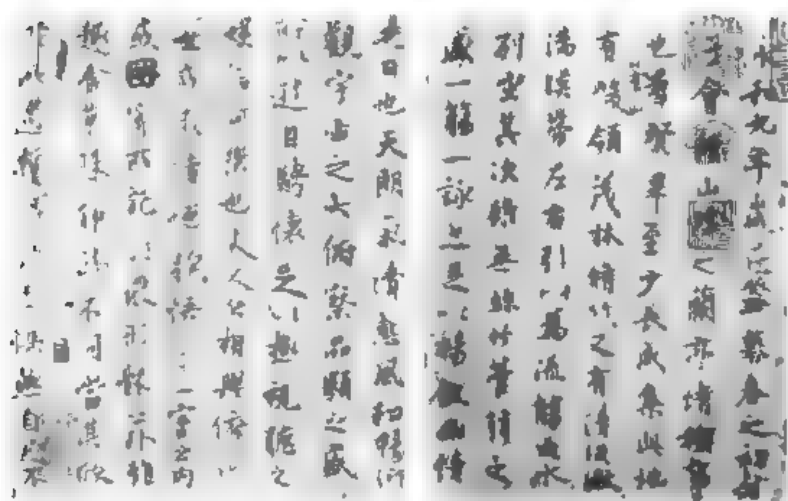 永和九年歲在癸丑暮春之初會
于會稽山陰之蘭亭脩稧事
也羣賢畢至少長咸集此地
有崇山峻領茂林脩竹又有清流激
湍暎帶左右引以為流觴曲水
列坐其次雖無絲竹管弦之
盛一觴一詠亦足以暢敘幽情
是日也天朗氣清惠風和暢仰
觀宇宙之大俯察品類之盛
所以遊目騁懷足以極視聽之
娛信可樂也夫人之相與俯仰
一世或取諸懷抱悟言一室之內
或因寄所託放浪形骸之外雖
趣舍萬殊靜躁不同當其欣
於所遇快然自足不